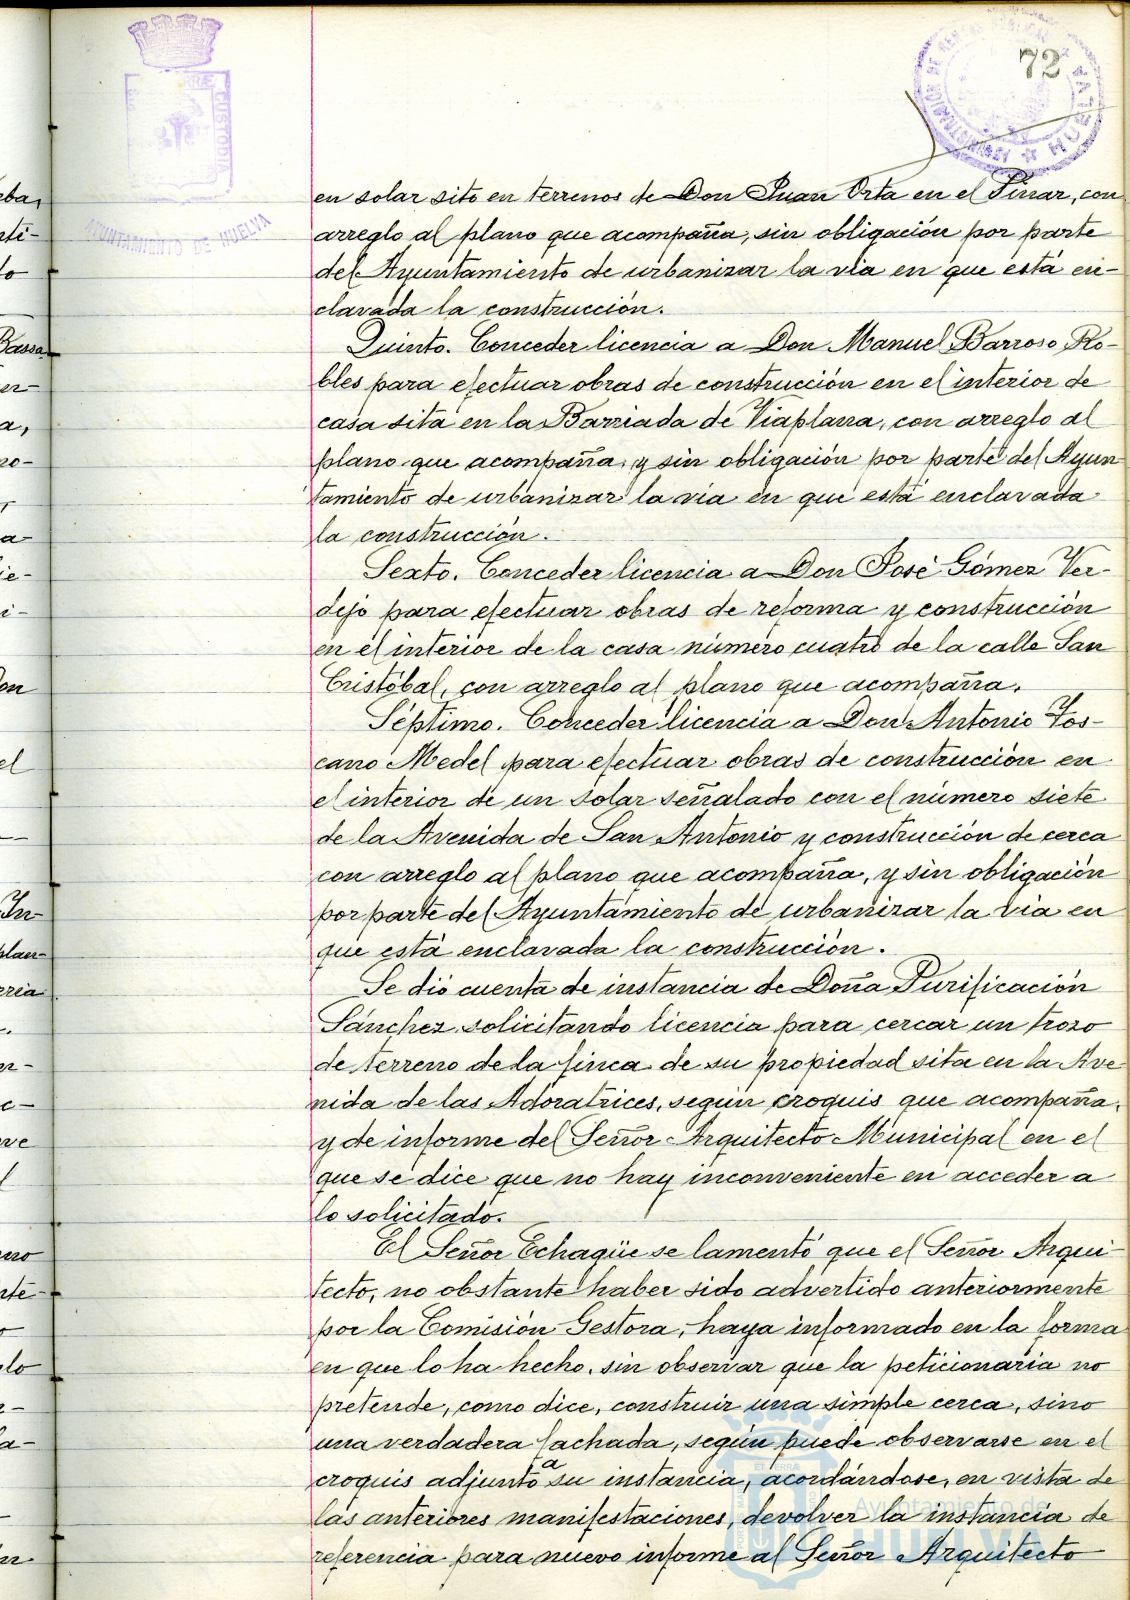 72
AYUNTAMIENTO DE HUELVA
HUELVA
en solar sito en terrenos de Don Juan Orta en el Pinar, con
arreglo al plano que acompaña, sin obligación por parte
del Ayuntamiento de urbanizar la vía en que está en-
clavada la construcción.
Quinto. Conceder licencia a Don Manuel Barroso Ro-
bles para efectuar obras de construcción en el interior de
casa sita en la Barriada de Viaplana, con arreglo al
plano que acompaña, y sin obligación por parte del Ayun
tamiento de urbanizar la vía en que está enclavada
la construcción.
Sexto. Conceder licencia a Don José Gómez Ver-
dejo para efectuar obras de reforma y construcción
en el interior de la casa número cuatro de la calle San
Cristóbal, con arreglo al plano que acompaña.
Séptimo. Conceder licencia a Don Antonio Tos-
cano Medel para efectuar obras de construcción en
el interior de un solar señalado con el número siete
de la Avenida de San Antonio y construcción de cerca
con arreglo al plano que acompaña, y sin obligación
por parte del Ayuntamiento de urbanizar la vía en
que está enclavada la construcción.
Se dió cuenta de instancia de Doña Purificación
Sánchez solicitando licencia para cercar un trozo
de terreno de la finca de su propiedad sita en la Ave
nida de las Adoratrices, según croquis que acompaña,
y de informe del Señor Arquitecto Municipal en el
que se dice que no hay inconveniente en acceder a
lo solicitado.
El Señor Echagüe se lamentó que el Señor Arqui-
tecto, no obstante haber sido advertido anteriormente
por la Comisión Gestora, haya informado en la forma
en que lo ha hecho, sin observar que la peticionaria no
pretende, como dice, construir una simple cerca, sino
una verdadera fachada, según puede observarse en el
croquis adjunto a su instancia, acordándose, en vista de
las anteriores manifestaciones, devolver la instancia de
referencia para nuevo informe al Señor Arquitecto
Ayuntamiento de
HUELVA